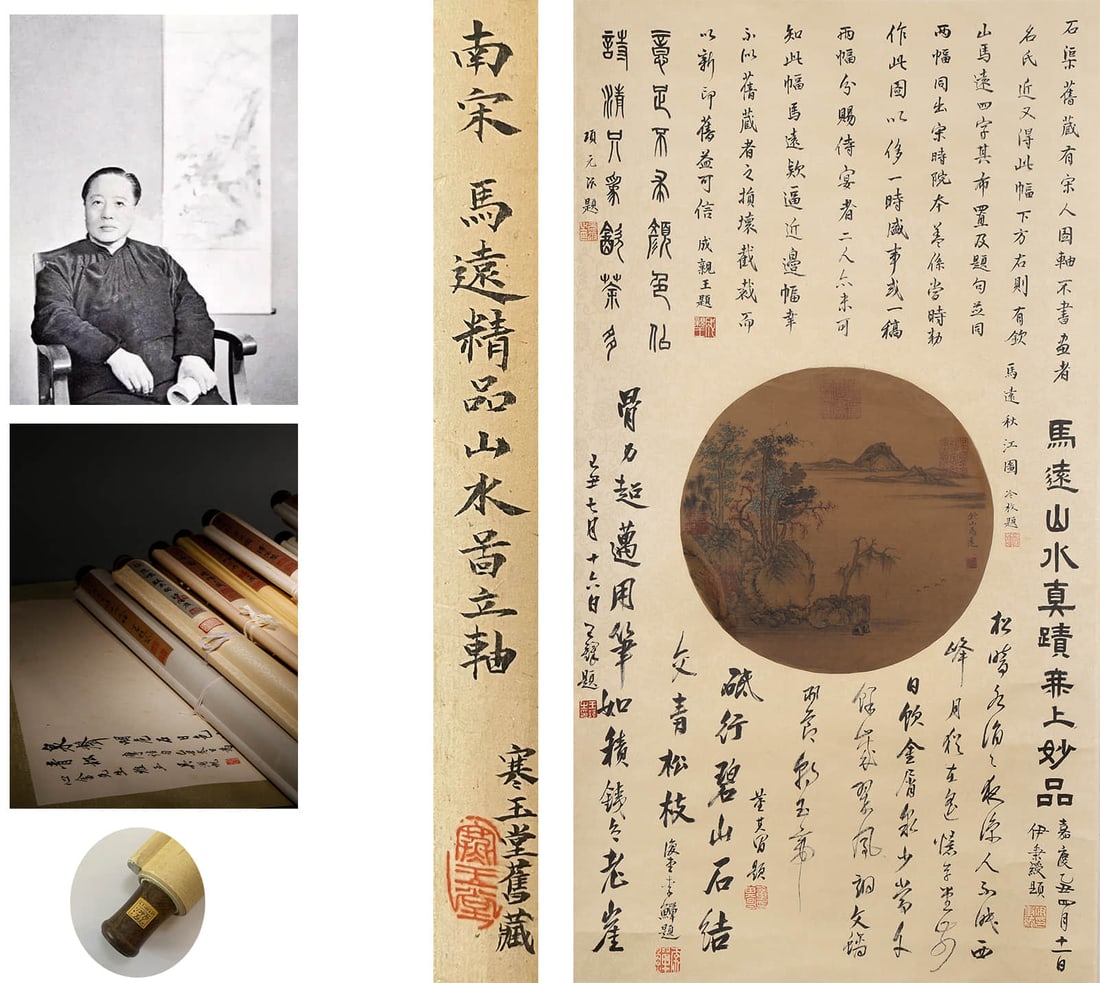 南宋 馬遠精品山水啚立軸
寒玉堂舊藏
寒玉堂
石渠舊蔵有宋人團軸不書畫者
名氏近又得此幅下方右則有欽
山馬遠四字其布置及題句並同
兩幅同出宋時院本蓋係當時勅
作此圖以侈一時盛事或一稿
兩幅分賜侍宴者二人亦未可
知此幅馬遠欵逼近邊幅幸
不似舊蔵者之損壞截裁而
以新印舊益可信 成親王題
意足不求顏色似
詩清只為飲茶多
項元汴題
馬遠秋江圖 冷枚題
馬遠山水真蹟無上妙品
嘉慶乙丑四月十一日
伊秉綬題
骨力超邁用筆如積鐵之老崖
己丑七月十六日 王鐸題
砥行碧山石結
交青松枝
復堂李鱓題
董其昌題
松
峰月猶在
日飲金屑泉少當千
餘歲翠鳳翊文螭
羽節朝玉帝